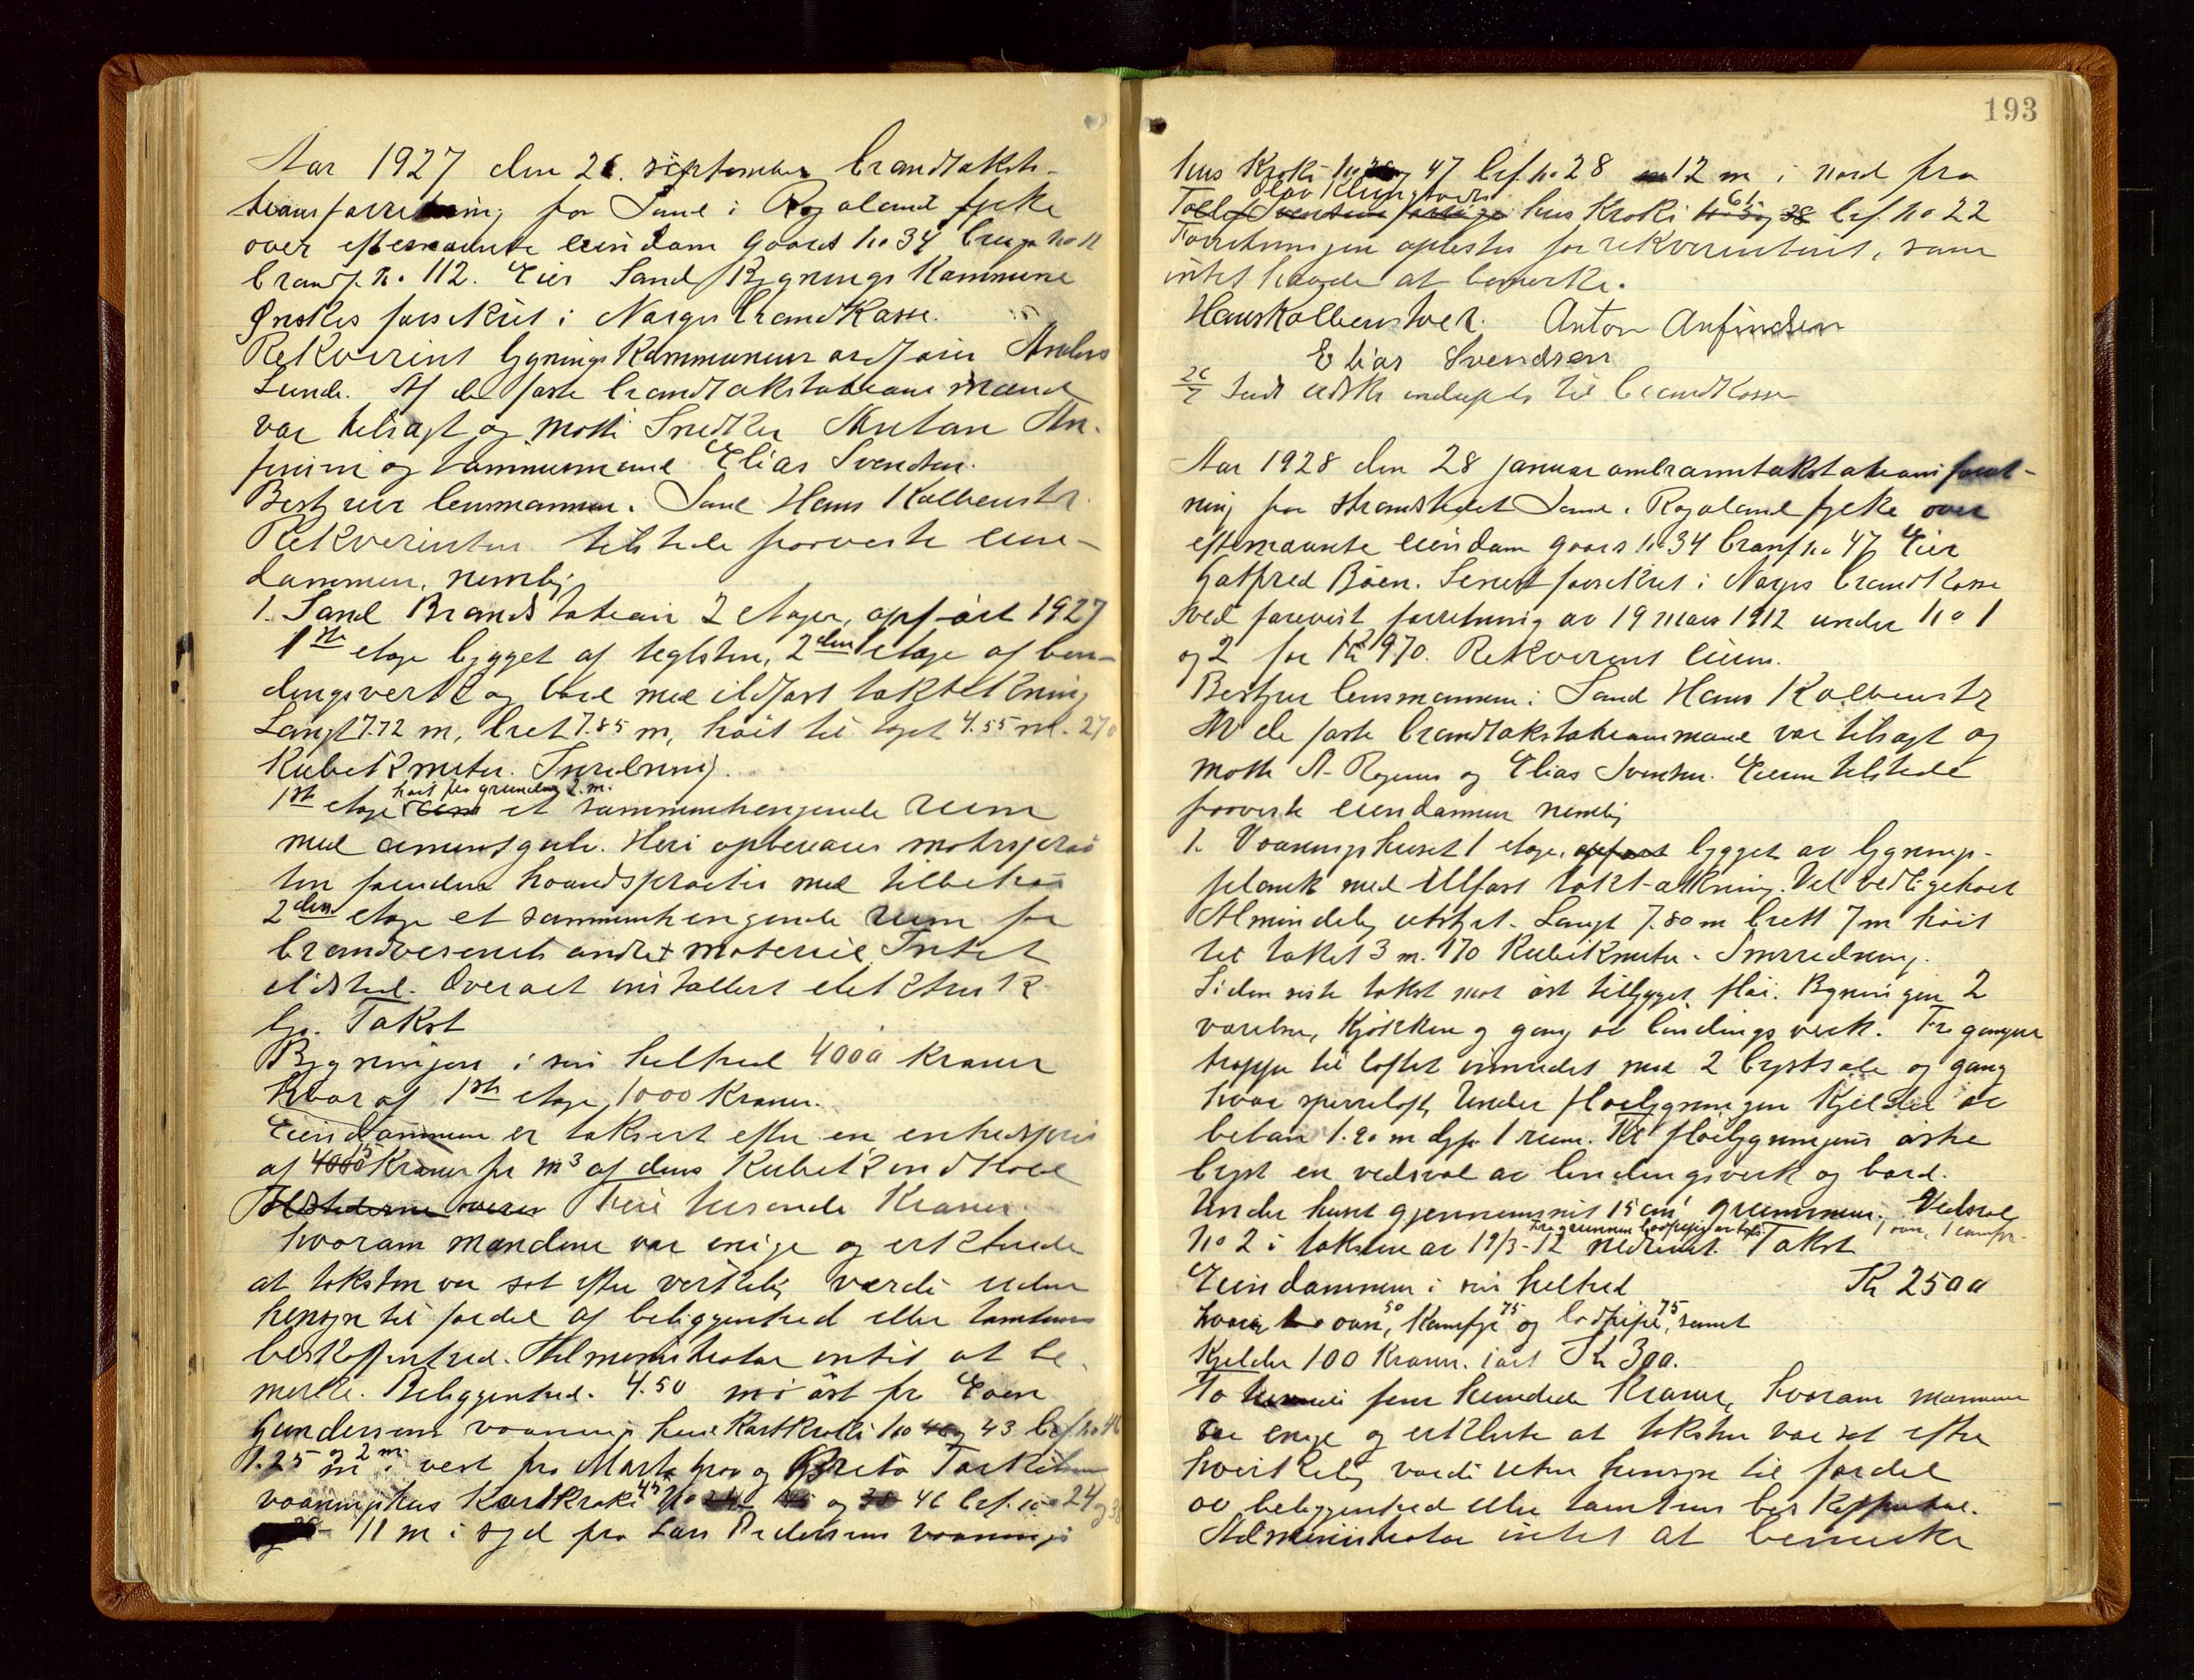 Aar 1927 den 26. september brandtakst-
tionsforretning for Sand i Rogaland fylke
over efternævnte eiendom gaards no 34 brugs no 11
brandf. no. 112. Eier Sand Bygnings Kommune
Ønskes forsikret i Norges brandkasse.
Rekvirent bygningskommunens ordfører Anders
Lunde. Af de faste brandtakstationsmænd
var tilsagt og møtte Snedker Anton An-
finsen og tømmermand Elias Svendsen.
Bestyrer lensmannen i Sand Hans Kolbenstv.
Rekvirenten tilstede foreviste eien-
dommen, nemlig
1. Sand Brandstation 2 etager, opført 1927
1ste etage bygget af teglsten, 2den etage af bin-
dingsverk og bord med ildfast taktekning
Langt 7.72 m, bret 7.85 m, høit til taget 4.55 m. 270
Kubikmeter. Inredning.
høit fra grunden 2. m.
1ste etage et sammenhengende rum
med cementgulv. Heri opbevares motorsprøi
ten foruden haandsprøiter med tilbehør
2den etage et sammenhengende rum for
brandvesenets andet materiel. Intet
ildsted. Overalt installert elektrisk
lys. Takst
Bygningen i sin helhed 4000 kroner
hvoraf 1ste etage 1000 Kroner.
Eiendommen er taksert efter en enhedspris
af 15 Kroner pr m3 af dens Kubikindhold
Ildstederne Fire tusende Kroner
hvorom mændene var enige og erklærede
at taksten var sat efter virkelig værdi uden
hensyn til fordel af beliggenhed eller tomtens
beskaffenhed. Administrator intet at be-
merke. Beliggenhed. 4.50 m i øst fra Even
Gundersens vaanings hus Kartkroki no 43 brf no 46
1.25 og 2 m i vest fra Marta og Brita Torkelsen
vaaningshus Kartkroki 45 og 46 brf. no 24 og 38
11 m i syd fra Lars Pedersens vaanings
193
hus Kroki no 47 brf. no 28 12 m i nord fra
Olav Klungtveit
Tollef Svendsens hus Kroki 61 brf. no 22
Forretningen oplestes for rekvirenten, som
intet havde at bemerke.
Hans Kolbenstvedt. Anton Anfindsen
Elias Svendsen
Sendt utskr. til brandkassen
Aar 1928 den 28 januar ombranntakstationsforret-
ning for strandstedet Sand i Rogaland fylke over
eftermævnte eiendom gaards no 34 branf no 47 Eier
Gotfred Bøen. Senest forsikret i Norges brandkasse
ved forevist forretning av 19 mars 1912 under no 1
og 2 for Kr 2970. Rekvirent eieren.
Bestyrer lensmannen i Sand Hans Kolbenstv
Av de faste brandtakstationsmænd var tilsagt og
møtte A. Rogenes og Elias Svendsen. Eieren tilstede
foreviste eiendommen nemlig
1. Vaaningshuset 1 etage, opført bygget av bygnings-
plank med ildfast taktækning. Vel vedligeholt
Almindelig utstyrt. Langt 7.80 m brett 7 m høit
til taket 3 m. 170 Kubikmeter. Innredning.
Siden siste takst mot øst tilbygget fløi. Bygningen 2
værelser, kjøkken og gang av bindingsverk. Fra gangen
trappe til loftet innredet med 2 lystsale og gang
hvor sperreloft. Under fløibygningen kjelder av
betong 1.90 m dyp. 1 rum. Til fløibygningens østre
lyst en vedsval av bindingsverk og bord.
Under huset gjennemsnit 15 cm grunnmur. Vedsval
no 2 i taksten av 19/3-12 nedrevet. Takst
Eiendommen i sin helhed Kr 2500
hvorav ovn 50, Komfyr 75 og brandpipe 75, samt
Kjelder 100 Kroner. ialt Kr 300.
To tusende fem hundrede kroner, hvorom mennene
var enige og erklærte at taksten var sat efter
hvirkelig værdi uten hensyn til fordel
av beliggenhed eller tomtens beskaffenhed.
Administrator intet at bemerke